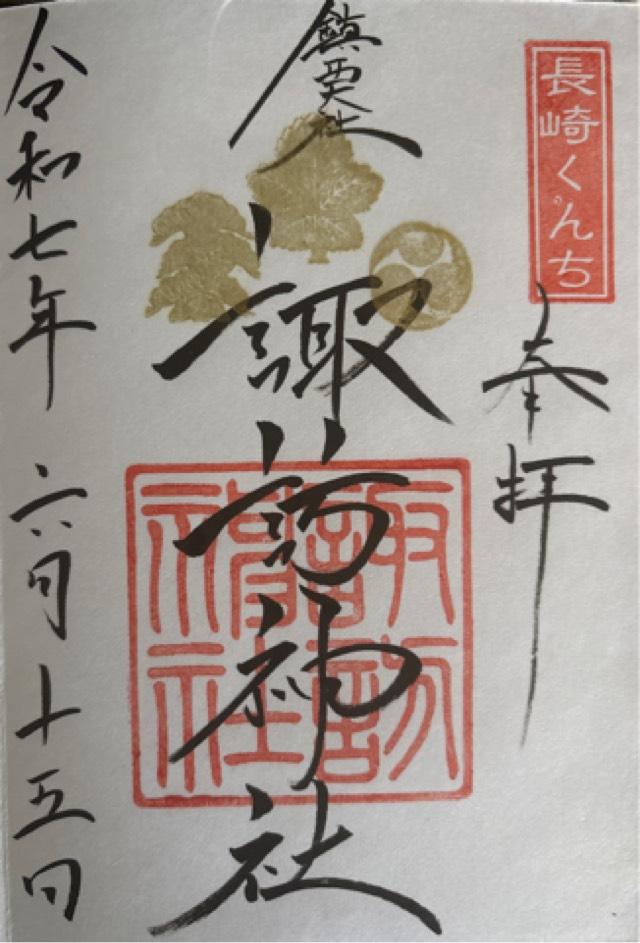 長崎くんち
奉拝
鎮西大社
諏訪神社
諏訪
神社
令和七年 六月十五日